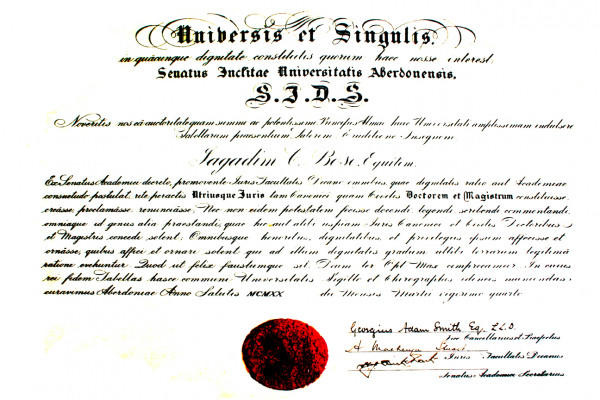 Universis et Singulis.
in quâcunque dignitate constitutis quorum haec nosse interest,
Senatus Inclitae Universitatis Aberdonensis.
S.P.D.S.
Noveritis nos eâ auctoritate quam summi ac potentissimi Principes Almae huic Universitati amplissimam indulsere
tabellarum praesentium latorem eruditione Insignem
Jagadim C. Bose, Equitem,
Ex Senatus Academici decreto, promovente Juris Facultatis Decano omnibus, quae dignitatis ratio aut Academiae
consuetudo postulat rite peractis Utriusque Juris tam Canonici quam Civilis Doctorem et Magistrum constituisse,
creâsse, proclamâsse, renunciâsse, Nec non eidem potestatem fecisse docendi, legendi, scribendi, commentandi,
omniaque id genus alia praestandi, quae hic aut alibi uspiam Juris Canonici et Civilis Doctoribus
et Magistris concedi solent. Omnibusque honoribus, dignitatibus, et privilegiis ipsum affecisse et
ornâsse, quibus affici et ornari solent qui ad illum dignitatis gradum alibi terrarum legitimâ
ratione evehuntur. Quod ut felix faustumque sit Deum ter Opt. Max. imprecamur. In cujus
rei fidem Tabellas hasce communi Universitatis Sigillo et Chirographis idoneis muniendas
curavimus Aberdoniae Anno Salutis MCMXX die Mensis Martii vigesimo quarto
Georgius Adam Smith Eq. LL.D.
Vice Cancellarius et Praefectus
A Mackenzie Stuart
Juris Facultatis Decanus
Senatus Academici Secretarius